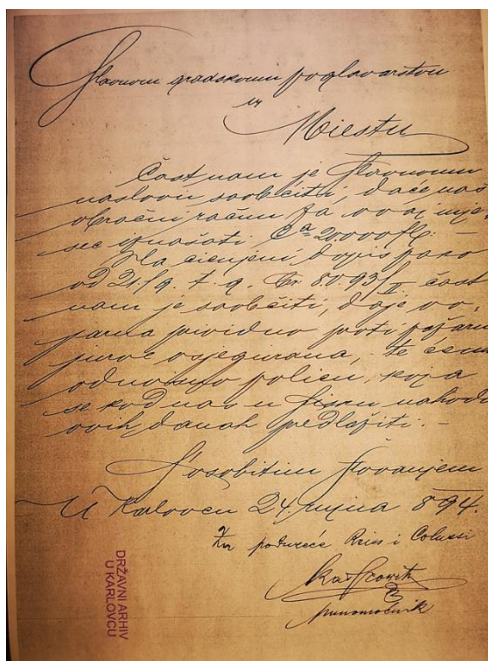 Slavnom gradskom poglavarstvu
u
Miestu
Čast nam je Slavnomu
naslovu saobćiti, da će naš
obročni račun za ovaj mje-
sec iznašati Ca 20.000 fl. –
Na cienjeni dopis
od 21/9. t. g. Br. 8093/II čast
nam je saobćiti, da je vo-
parna prividno proti požaru
osjegurana, te ćemo
odnosnu policu, koja
se kod nas u nahodi
ovih danah predložiti. –
S osobitim štovanjem
U Karlovcu 24 rujna 894.
Za poduzeće Reiss i Colussi
punomoćnik
DRŽAVNI ARHIV
U KARLOVCU